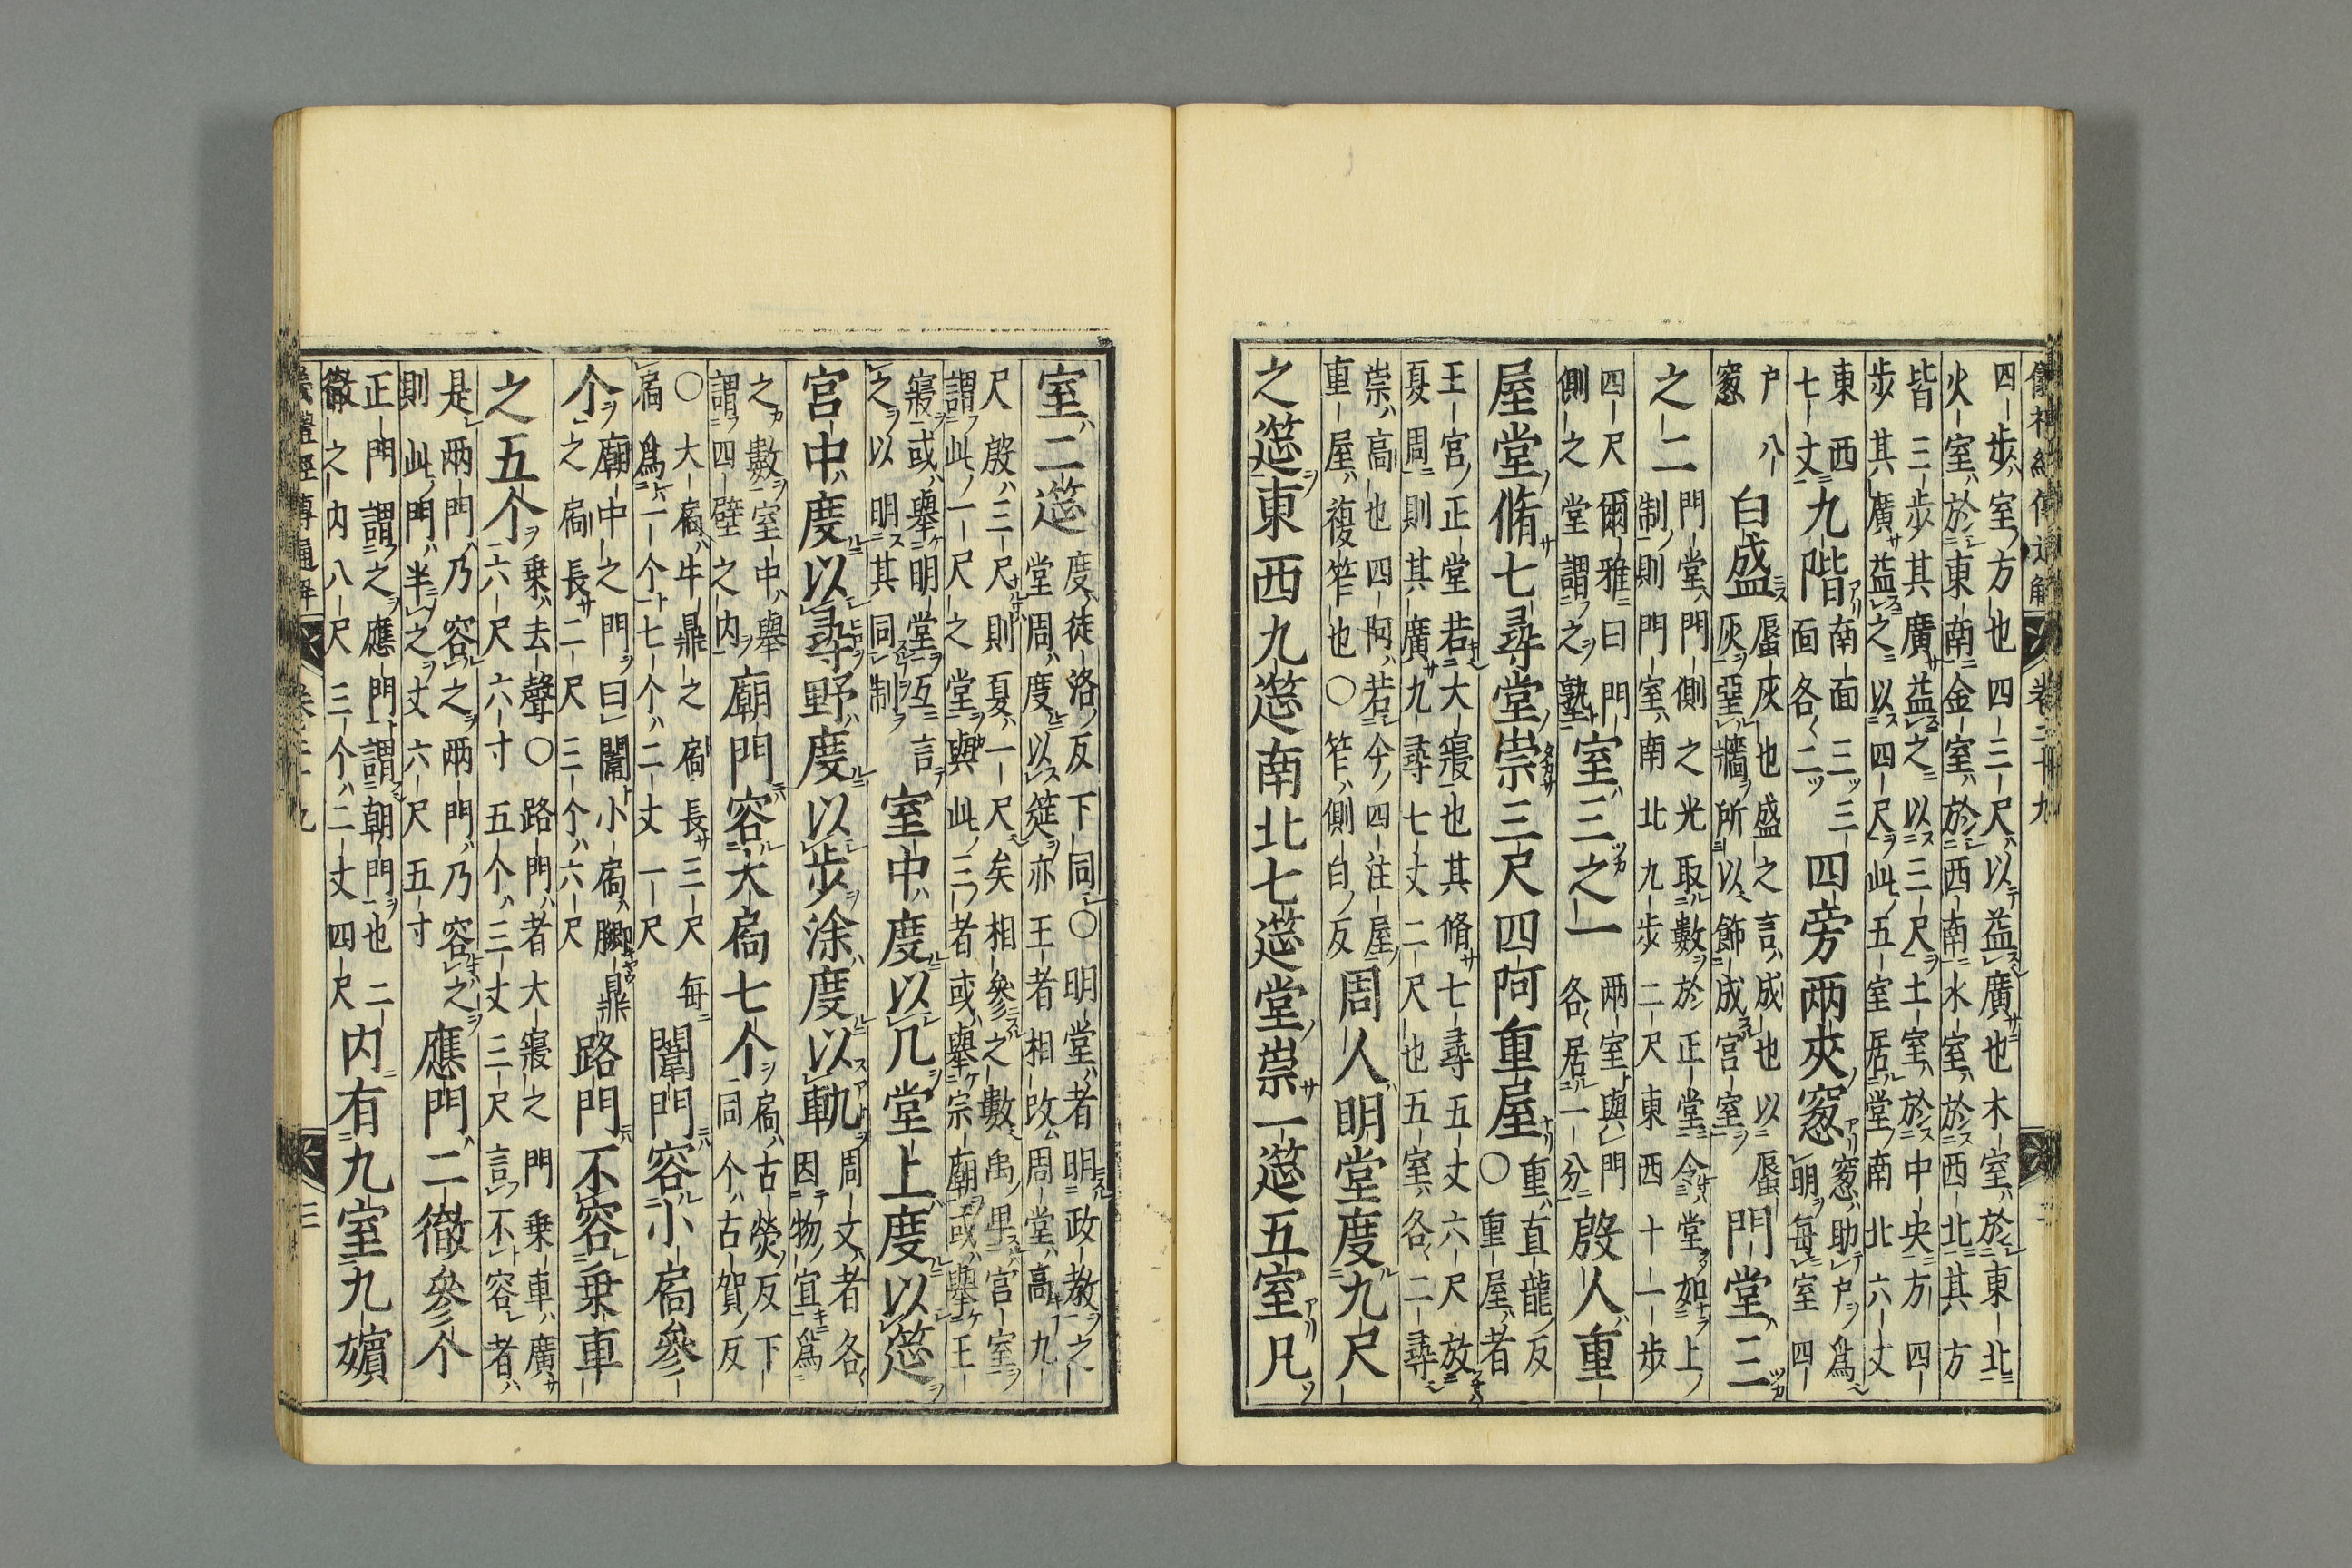 儀禮經傳通解 卷二十九 二
四步室方也四三尺以益廣也木室於東北
火室於東南金室於西南水室於西北其方
皆三步其廣益之以三尺土室於中央方四
步其廣益之以四尺此五室居堂南北六丈
東西七丈九階南面三三面各二四旁兩夾窻窻助戶爲明每室四
戶八窻白盛蜃灰也盛之言成也以蜃灰堊牆所以飾成宮室門堂三
之二門堂門側之光取數於正堂令堂如上制則門室南北九步二尺東西十一步
四尺爾雅曰門側之堂謂之塾室三之一兩室與門各居一分殷人重
屋堂脩七尋堂崇三尺四阿重屋重直龍反○重屋者
王宮正堂若大寢也其脩七尋五丈六尺放
夏周則其廣九尋七丈二尺也五室各二尋
崇高也四阿若今四注屋重屋複笮也○笮側白反周人明堂度九尺
之筵東西九筵南北七筵堂崇一筵五室凡
室二筵度徒洛反下同○明堂者明政教之堂周度以筵亦王者相改周堂高九
尺殷三尺則夏一尺矣相參之數禹卑宮室
謂此一尺之堂與此三者或舉宗廟或舉王
寢或舉明堂互言之以明其同制室中度以几堂上度以筵
宮中度以尋野度以步涂度以軌周文者各因物宜爲
之數室中舉謂四壁之内廟門容大扃七个扃古熒反下同个古賀反
○大扃牛鼎之扃長三尺每扃爲一个七个二丈一尺闈門容小扃參
个廟中之門曰闈小扃膷鼎之扃長二尺三个六尺路門不容乗車
之五个乗去聲○路門者大寢之門乗車廣六尺六寸五个三丈三尺言不容者
是兩門乃容之兩門乃容之則此門半之丈六尺五寸應門二徹參个
正門謂之應門謂朝門也二徹之内八尺三个二丈四尺内有九室九嬪
儀禮經傳通解 卷二十九 三